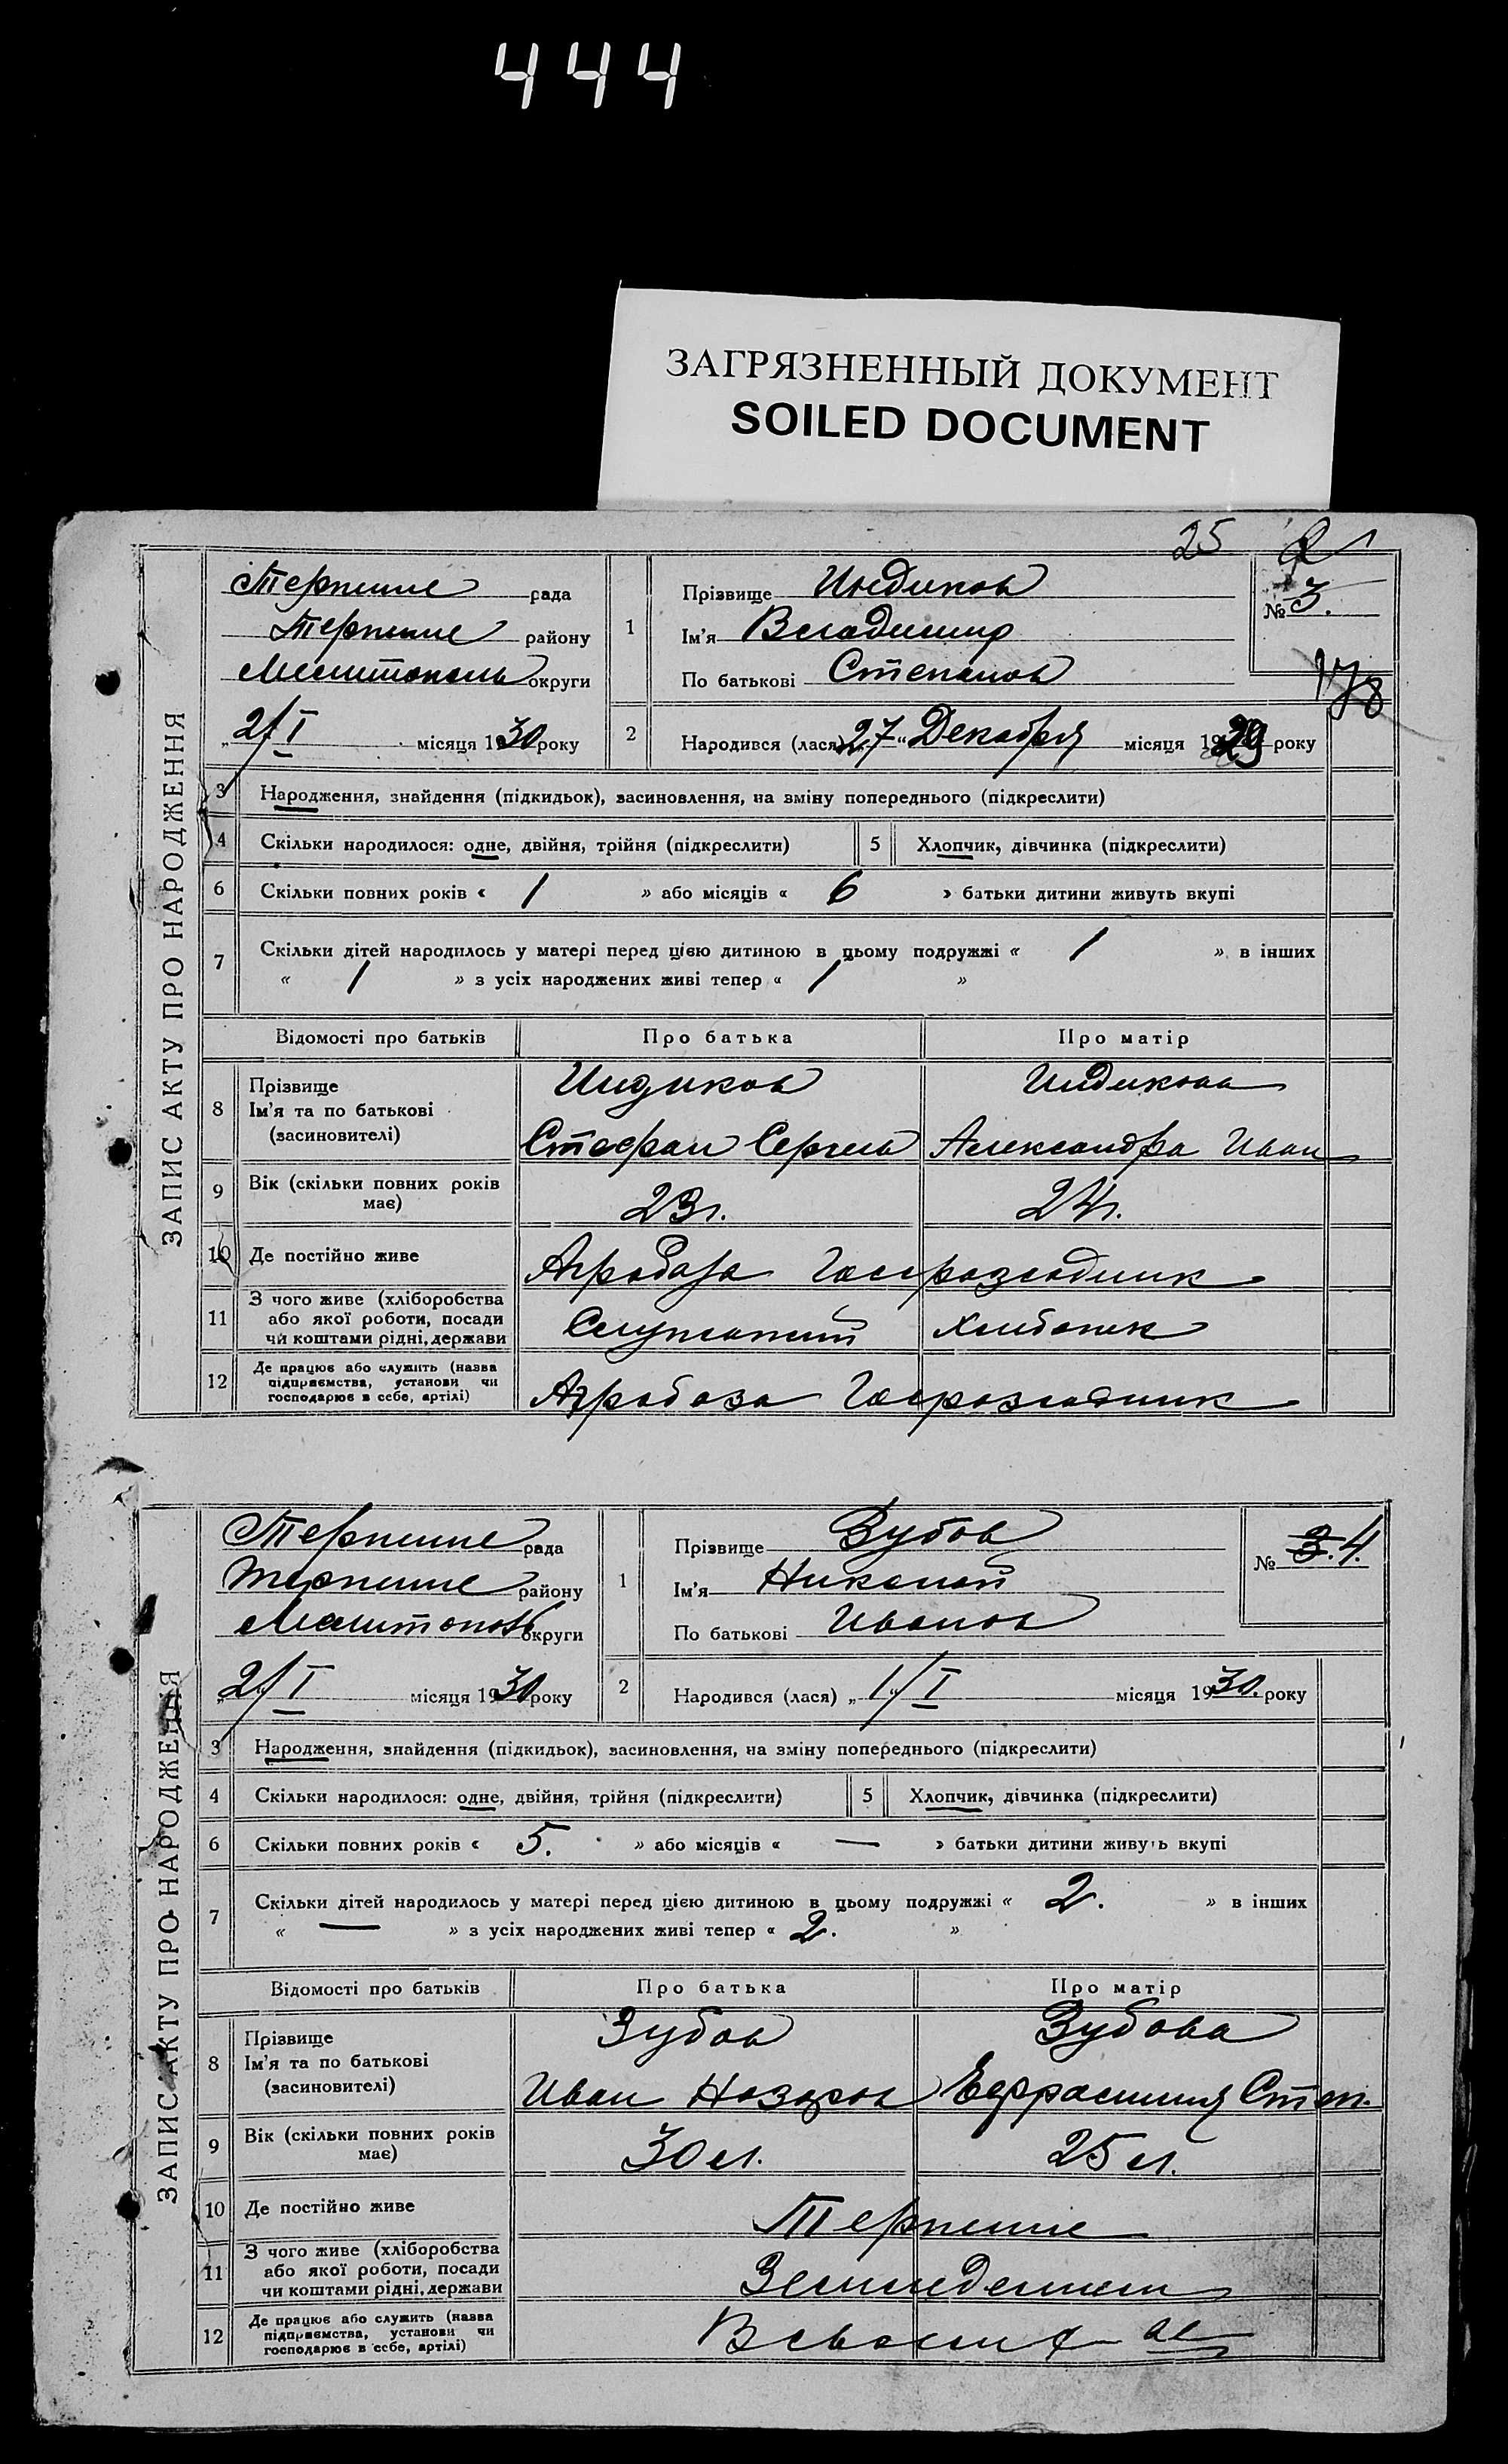 444
ЗАГРЯЗНЕННЫЙ ДОКУМЕНТ
SOILED DOCUMENT
25
ЗАПИС АКТУ ПРО НАРОДЖЕННЯ
Терпение рада
Терпение району
Мелитополь округи
„2/I місяця 1930 року
1 Прізвище Индиков
Ім'я Владимир
По батькові Степанов
№ 3.
178
2 Народився (лася) „27" Декабря місяця 1929 року
3 Народження, знайдення (підкидьок), засиновлення, на зміну попереднього (підкреслити)
4 Скільки народилося: одне, двійня, трійня (підкреслити) 5 Хлопчик, дівчинка (підкреслити)
6 Скільки повних років « 1 » або місяців « 6 » батьки дитини живуть вкупі
7 Скільки дітей народилось у матері перед цією дитиною в цьому подружжі « 1 » в інших
« 1 » з усіх народжених живі тепер « 1 »
Відомості про батьків Про батька Про матір
8 Прізвище
Ім'я та по батькові
(засиновителі)
Индиков Индикова
Стефан Сергеев Александра Иван
9 Вік (скільки повних років має) 23г. 24г.
10 Де постійно живе Агробаза Госрозсадник
11 З чого живе (хліборобства
або якої роботи, посади
чи коштами рідні, держави
Служащий
12 Де працює або служить (назва
підприємства, установи чи
господарює в себе, артілі)
Агробаза Госрозсадник
ЗАПИС АКТУ ПРО НАРОДЖЕННЯ
Терпение рада
Терпение району
Мелитополь округи
„2/I місяця 1930 року
1 Прізвище Зубов
Ім'я Николай
По батькові Иванов
№ 3. 4.
2 Народився (лася) „1/I місяця 1930. року
3 Народження, знайдення (підкидьок), засиновлення, на зміну попереднього (підкреслити)
4 Скільки народилося: одне, двійня, трійня (підкреслити) 5 Хлопчик, дівчинка (підкреслити)
6 Скільки повних років « 5. » або місяців « — » батьки дитини живуть вкупі
7 Скільки дітей народилось у матері перед цією дитиною в цьому подружжі « 2. » в інших
« — » з усіх народжених живі тепер « 2. »
Відомості про батьків Про батька Про матір
8 Прізвище
Ім'я та по батькові
(засиновителі)
Зубов Зубова
Иван Назаров Ефрасиния Степ.
9 Вік (скільки повних років має) 30 л. 25 л.
10 Де постійно живе Терпение
11 З чого живе (хліборобства
або якої роботи, посади
чи коштами рідні, держави
12 Де працює або служить (назва
підприємства, установи чи
господарює в себе, артілі)